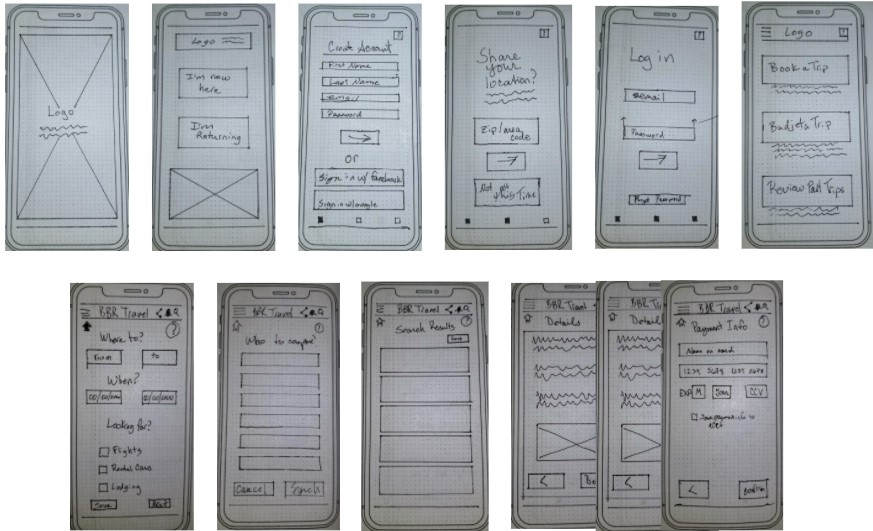 Logo
Logo
I'm new
here
I'm
Returning
?
Create Account
First Name
Last Name
Email
Password
or
Sign in w/ facebook
Sign in w/google
?
Share
your
location?
Zip/area
code
Not at
this Time
?
Log in
email
Password
Forgot Password
Logo
?
Book a Trip
Budjet a Trip
Review Past Trips
BBR Travel
?
Where to?
From
to
When?
Looking for?
Flights
Rental Cars
Lodging
Save
Next
BBR Travel
?
Who to compare?
Cancel
Search
BBR Travel
?
Search Results
Save
BBR Travel
Details
BBR Tr
Detail
BBR Travel
?
Payment Info
Name on card
1234 5678 1234 5678
EXP M
CCV